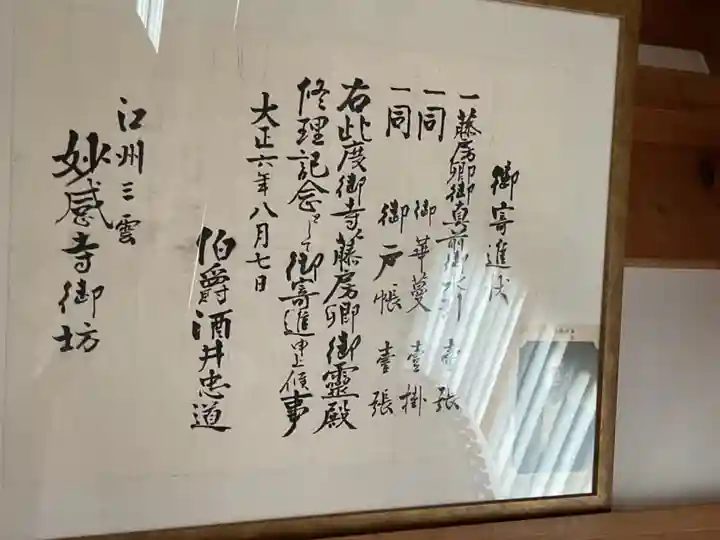 御寄進状
一藤房卿御真前御水引 壹張
一同 御華蔓 壹掛
一同 御戸帳 壹張
右此度御寺藤房卿御靈殿
修理記念として御寄進申上候事
大正六年八月七日
伯爵酒井忠道
江州三雲
妙感寺御坊